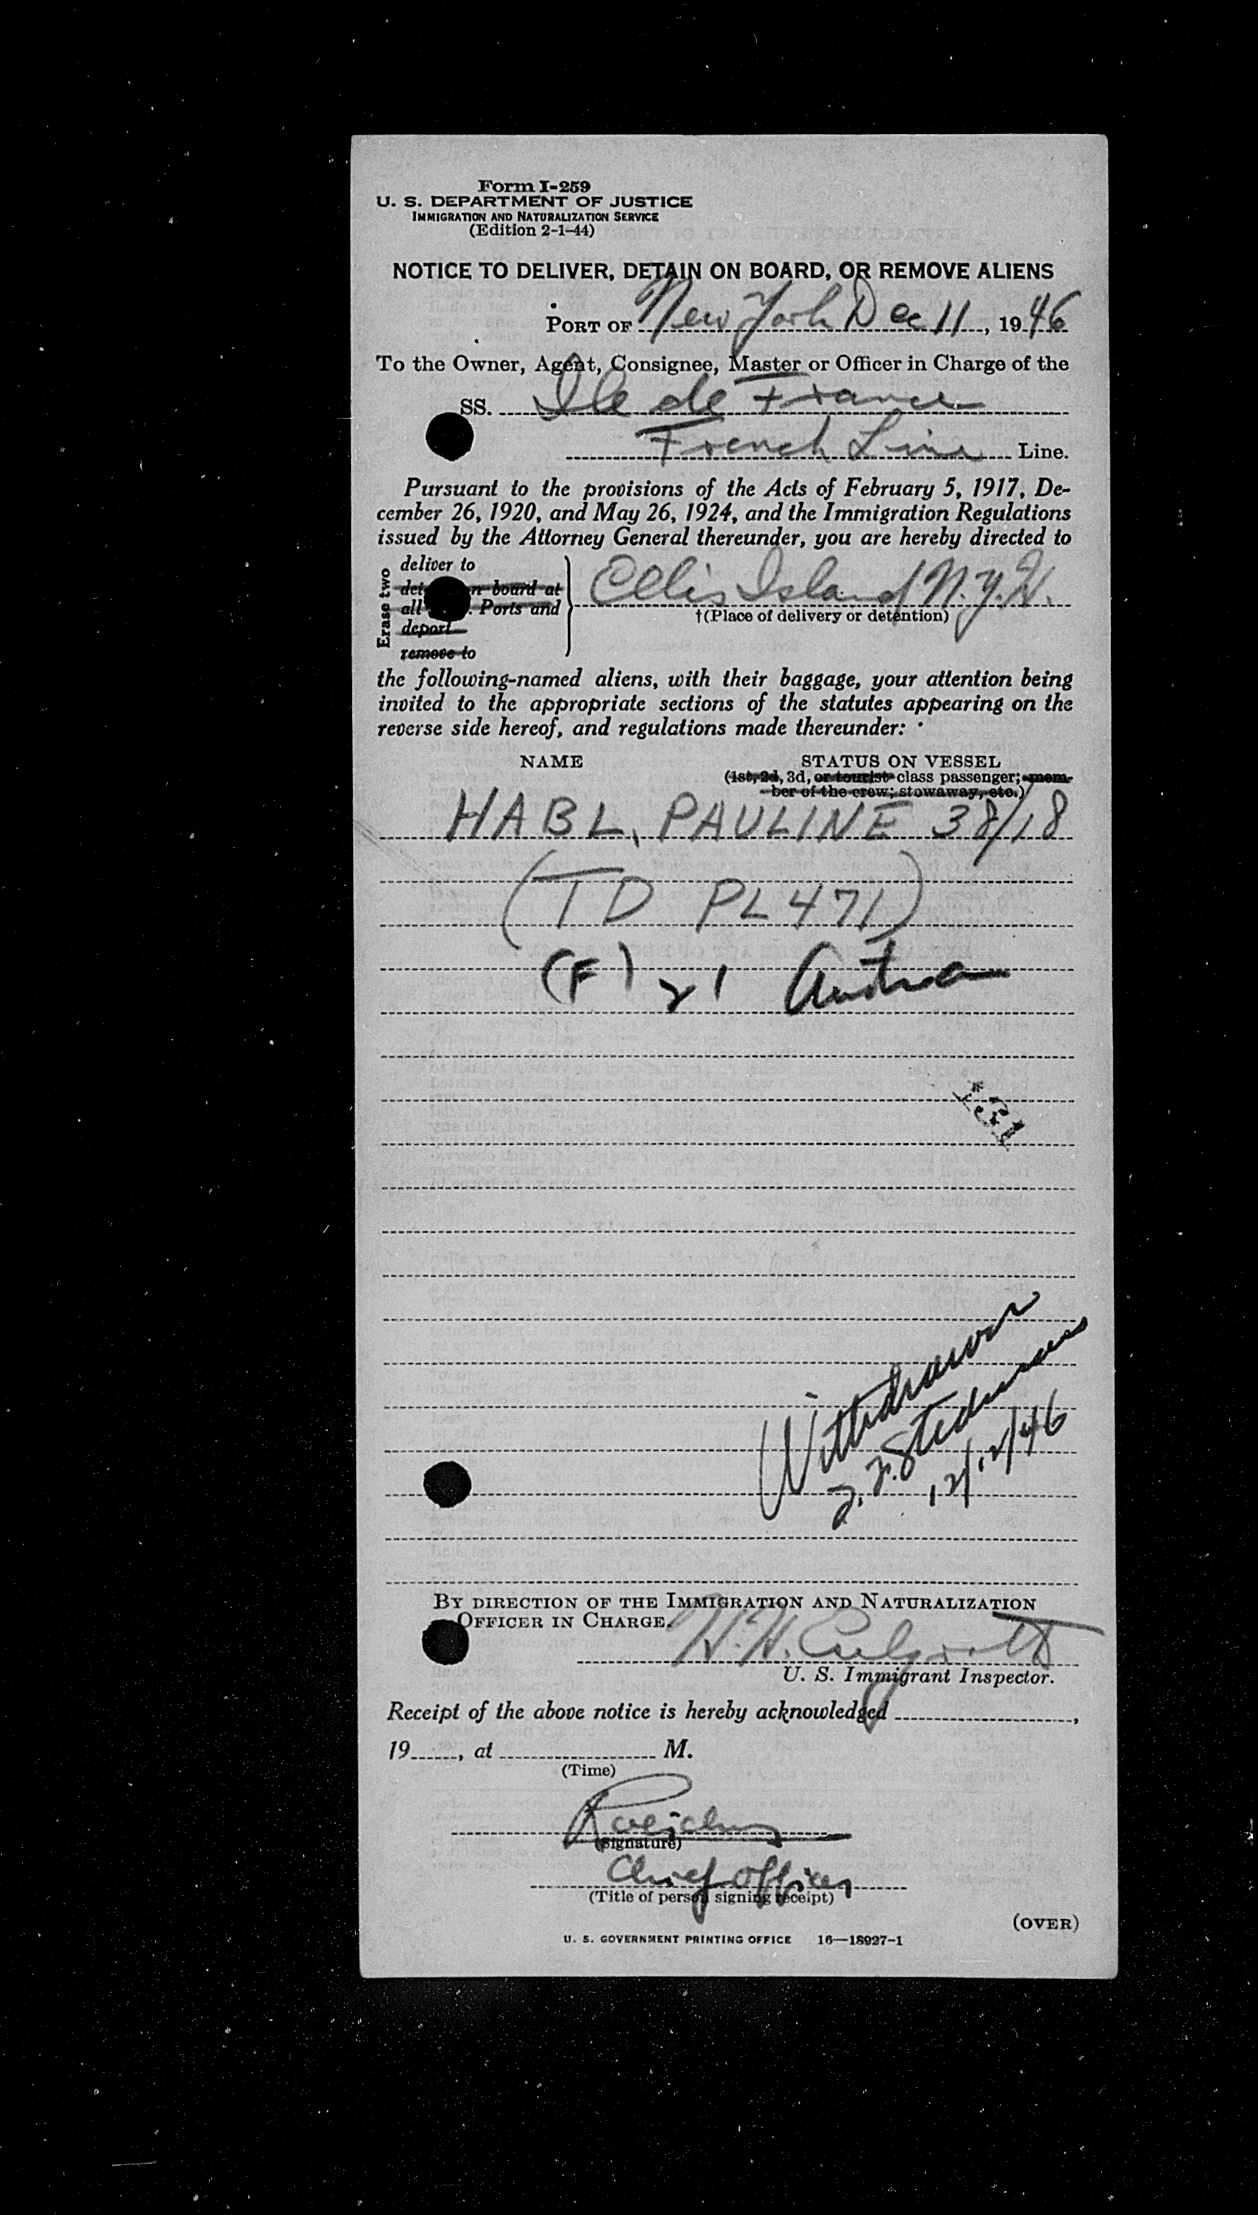 Form I-259
U. S. DEPARTMENT OF JUSTICE
IMMIGRATION AND NATURALIZATION SERVICE
(Edition 2-1-44)
NOTICE TO DELIVER, DETAIN ON BOARD, OR REMOVE ALIENS
PORT OF New York Dec 11, 1946
To the Owner, Agent, Consignee, Master or Officer in Charge of the
SS. Ile de France
French Line Line.
Pursuant to the provisions of the Acts of February 5, 1917, De-
cember 26, 1920, and May 26, 1924, and the Immigration Regulations
issued by the Attorney General thereunder, you are hereby directed to
Erase two
deliver to
n board at
all . Ports and
deport
remove to
Ellis Island N.Y.H.
†(Place of delivery or detention)
the following-named aliens, with their baggage, your attention being
invited to the appropriate sections of the statutes appearing on the
reverse side hereof, and regulations made thereunder:
NAME STATUS ON VESSEL
(1st, 2d, 3d, or tourist class passenger; mem-
ber of the crew; stowaway, etc.)
HABL, PAULINE 38/18
(TD PL471)
(F) 21 Austria
Withdrawn
Stedman
12/12/46
BY DIRECTION OF THE IMMIGRATION AND NATURALIZATION
OFFICER IN CHARGE.
H.H.
U. S. Immigrant Inspector.
Receipt of the above notice is hereby acknowledged ,
19 , at M.
(Time)
(Signature)
Chief officer
(Title of person signing receipt)
(OVER)
U. S. GOVERNMENT PRINTING OFFICE 16—18927-1